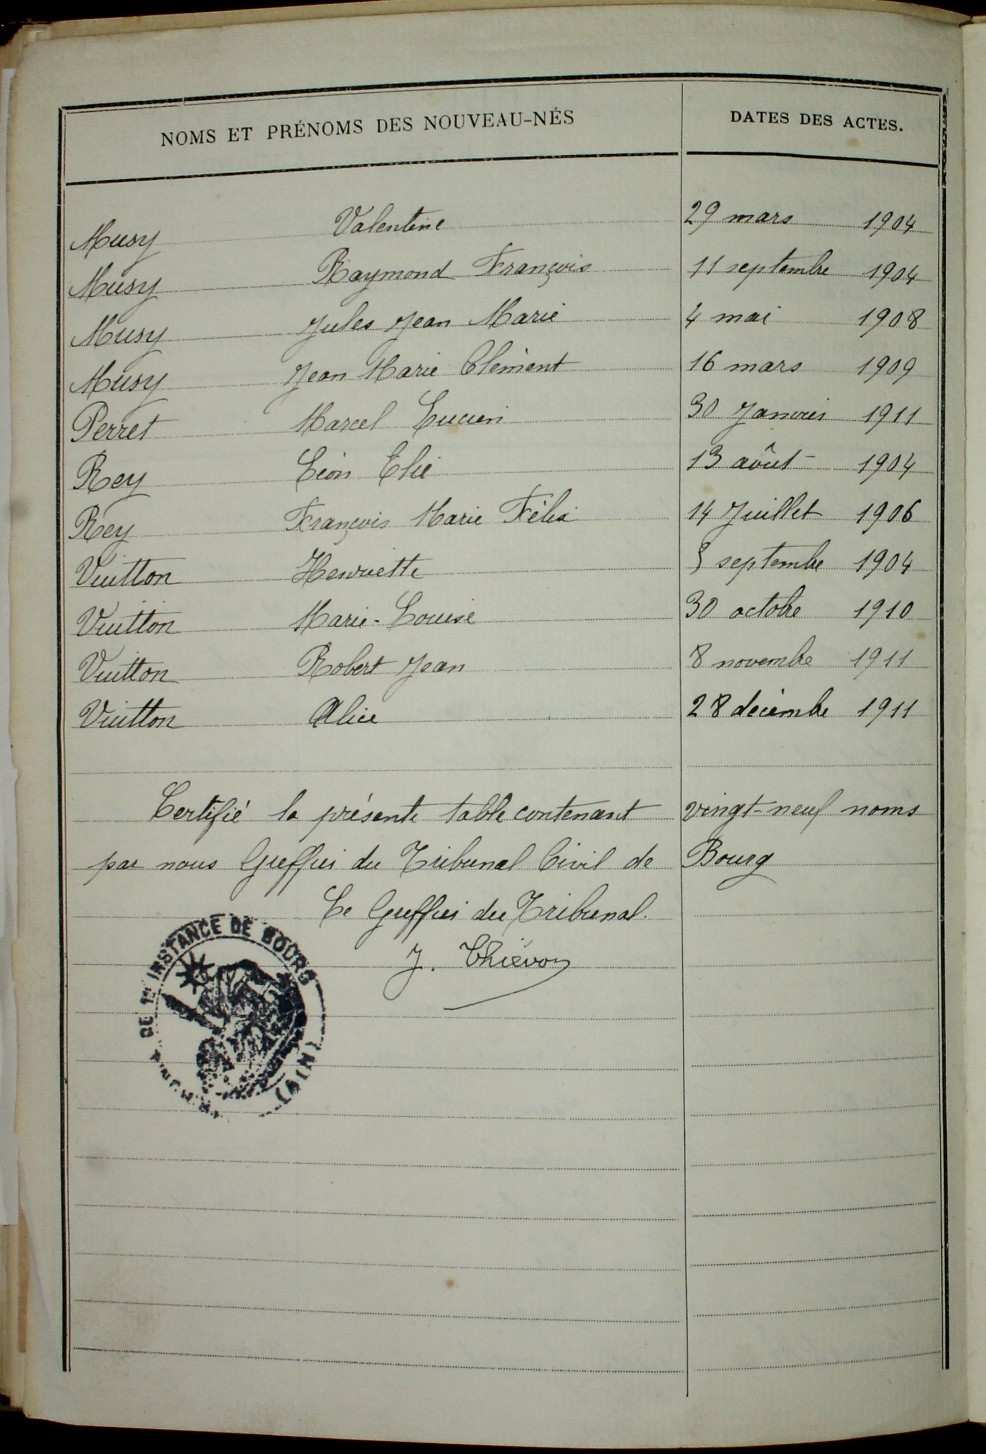 NOMS ET PRÉNOMS DES NOUVEAU-NÉS DATES DES ACTES.
Musy Valentine 29 mars 1904
Musy Raymond François 11 septembre 1904
Musy Jules Jean Marie 4 mai 1908
Musy Jean Marie Clément 16 mars 1909
Perret Marcel Lucien 30 Janvier 1911
Rey Léon Elie 13 août 1904
Rey François Marie Félix 14 Juillet 1906
Vuitton Henriette septembre 1904
Vuitton Marie-Louise 30 octobre 1910
Vuitton Robert Jean 8 novembre 1911
Vuitton Alice 28 décembre 1911
Certifié la présente table contenant vingt-neuf noms
par nous Greffier du Tribunal Civil de Bourg
Le Greffier du Tribunal.
J. Thiévon
DE 1re INSTANCE DE BOURG
(AIN)